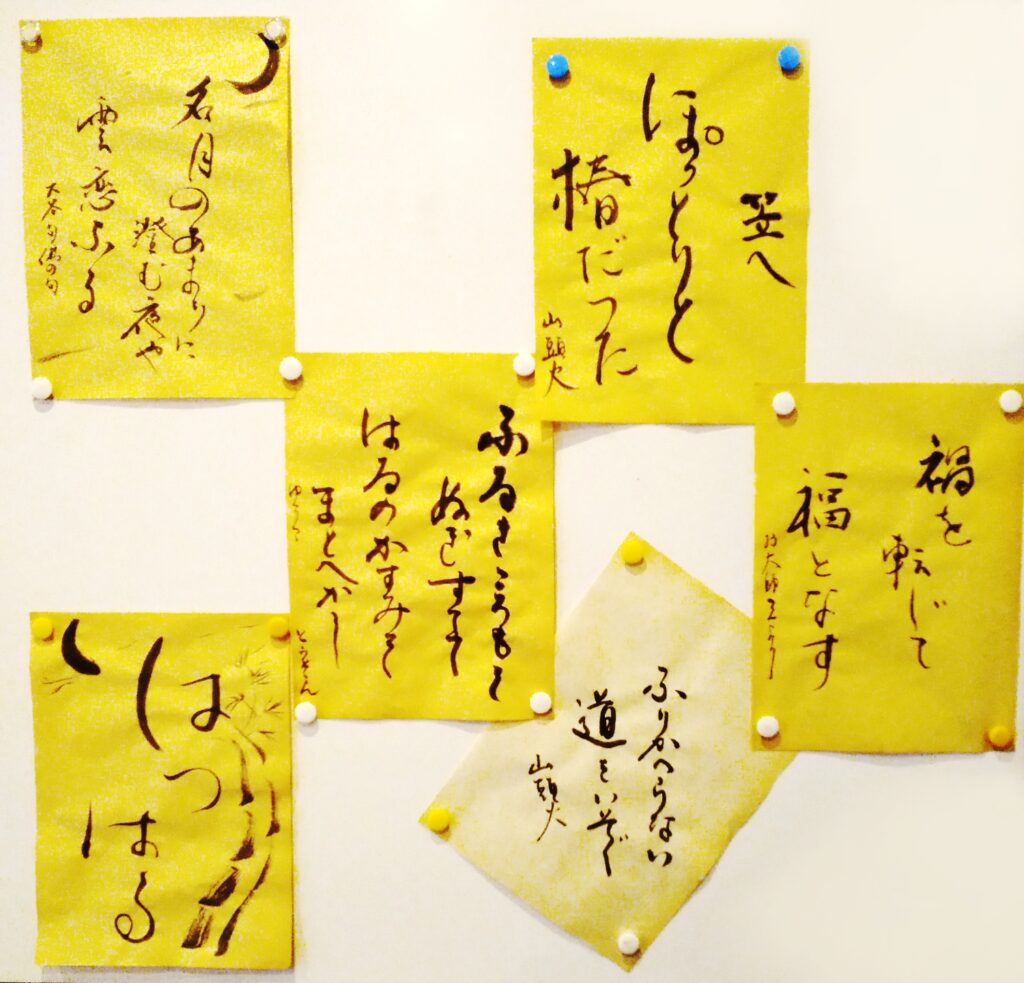 名月のあまりに
澄む夜や
雲恋ふる
大谷句佛の句
笠へ
ぽつとりと
椿だつた
山頭火
ふるきころもを
ぬぎすてて
はるのかすみを
まとへかし
とうそん
禍を
転じて
福となす
ふりかへらない
道をいそぐ
山頭火
はつ
はる